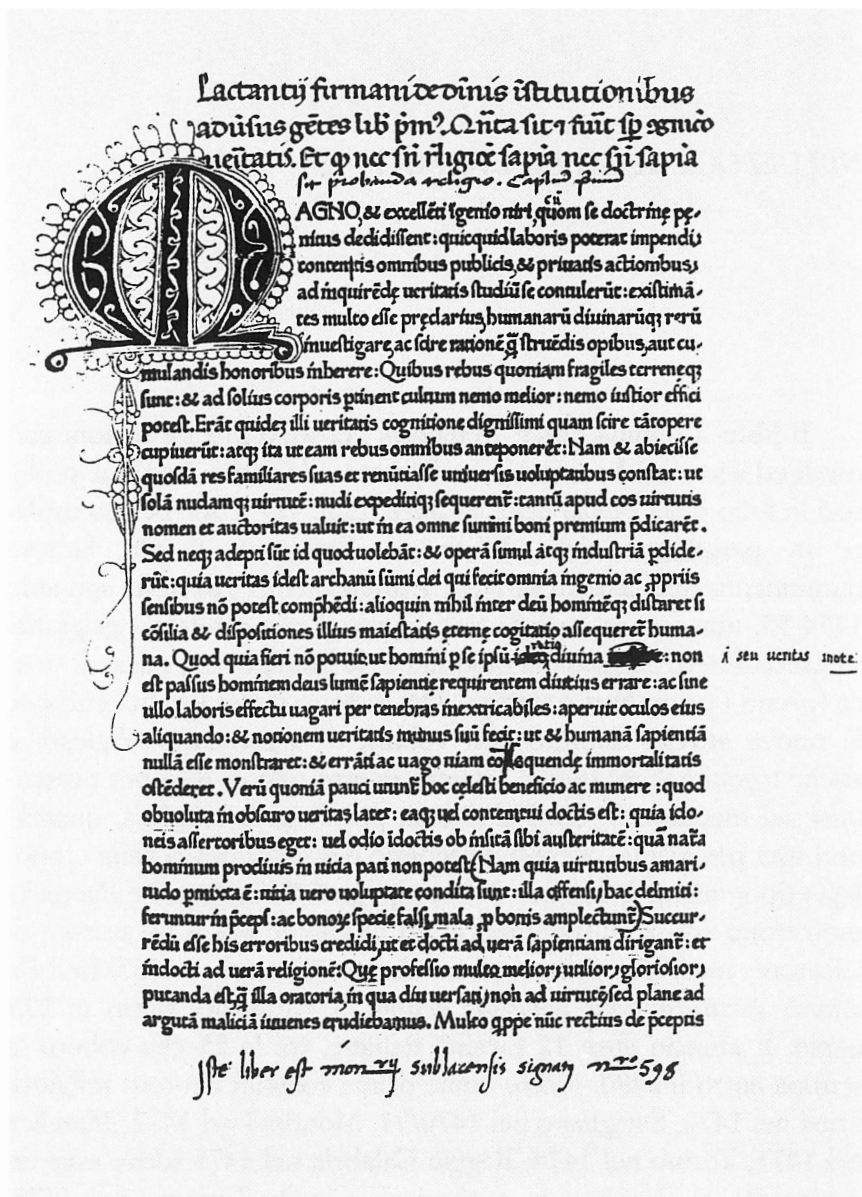 Lactantij firmani de diuinis īstitutionibus
aduſus gētes lib pm?. Qnta sit ⁊ fuit sp cognitio
ueritatis. Et q nec sn rligiōe sapia nec sn sapia
sit probanda religio. Caplm prim
MAGNO, & excellēti īgenio uiri, quom se doctrinę pę-
nitus dedidissent: quicquid laboris poterat impendi,
contentis omnibus publicis, & priuatis actionibus,
ad inquirēdę ueritatis studiū se contulerūt: existimā-
tes multo esse pręclarius, humanarū diuinarūq; rerū
īnuestigare, ac scire rationē, q̄ struēdis opibus, aut cu-
mulandis honoribus inherere: Quibus rebus quoniam fragiles terreneq;
sunt: & ad solius corporis ptinent cultum nemo melior: nemo iustior effici
potest. Erāt quidez illi ueritatis cognitione dignissimi quam scire tātopere
cupiuerūt: atq; ita ut eam rebus omnibus anteponerēt: Nam & abiecisse
quosdā res familiares suas et renūtiasse uniuersis uoluptatibus constat: ut
solā nudamq; uirtutē: nudi expeditiq; sequerent̄: tantū apud eos uirtutis
nomen et auctoritas ualuit: ut in ea omne summi boni premium pdicarēt.
Sed neq; adepti sūt id quod uolebāt: & operā simul atq; industriā pdide-
rūt: quia ueritas idest archanū sūmi dei qui fecit omnia ingenio ac ꝓpriis
sensibus nō potest comphēdi: alioquin nihil inter deū hominēq; distaret si
cōsilia & dispositiones illius maiestatis eternę cogitatio assequeret̄ huma-
na. Quod quia fieri nō potuit ut homini p se ipsū diuina : non
i seu ueritas inote.
est passus hominem deus lumē sapientie requirentem diutius errare: ac sine
ullo laboris effectu uagari per tenebras inextricabiles: aperuit oculos eius
aliquando: & notionem ueritatis munus suū fecit: ut & humanā sapientiā
nullā esse monstraret: & errāti ac uago uiam cōsequende immortalitatis
ostēderet. Verū quoniā pauci utunt̄ hoc cęlesti beneficio ac munere: quod
obuoluta in obscuro ueritas latet: eaq; uel contemtui doctis est: quia ido-
neis assertoribus eget: uel odio īdoctis ob insitā sibi austeritatē: quā nat̄a
hominum procliuis in uitia pati non potest (Nam quia uirtutibus amari,
tudo pmixta ē: uitia uero uoluptate condita sunt: illa offensi, hac deliniti:
feruntur in pceps: ac bonoꝝ specie falsi, mala ꝓ bonis amplectunt̄) Succur-
rēdū esse his erroribus credidi, ut et docti ad uerā sapientiam dirigant̄: et
indocti ad uerā religionē: Quę professio multo melior, utilior, gloriosior,
putanda est, q̄ illa oratoria, in qua diu uersati, non ad uirtutē, sed plane ad
argutā maliciā iuuenes erudiebamus. Multo qppe nūc rectius de pceptis
Iste liber est monrij sublacensis signatus nro 598